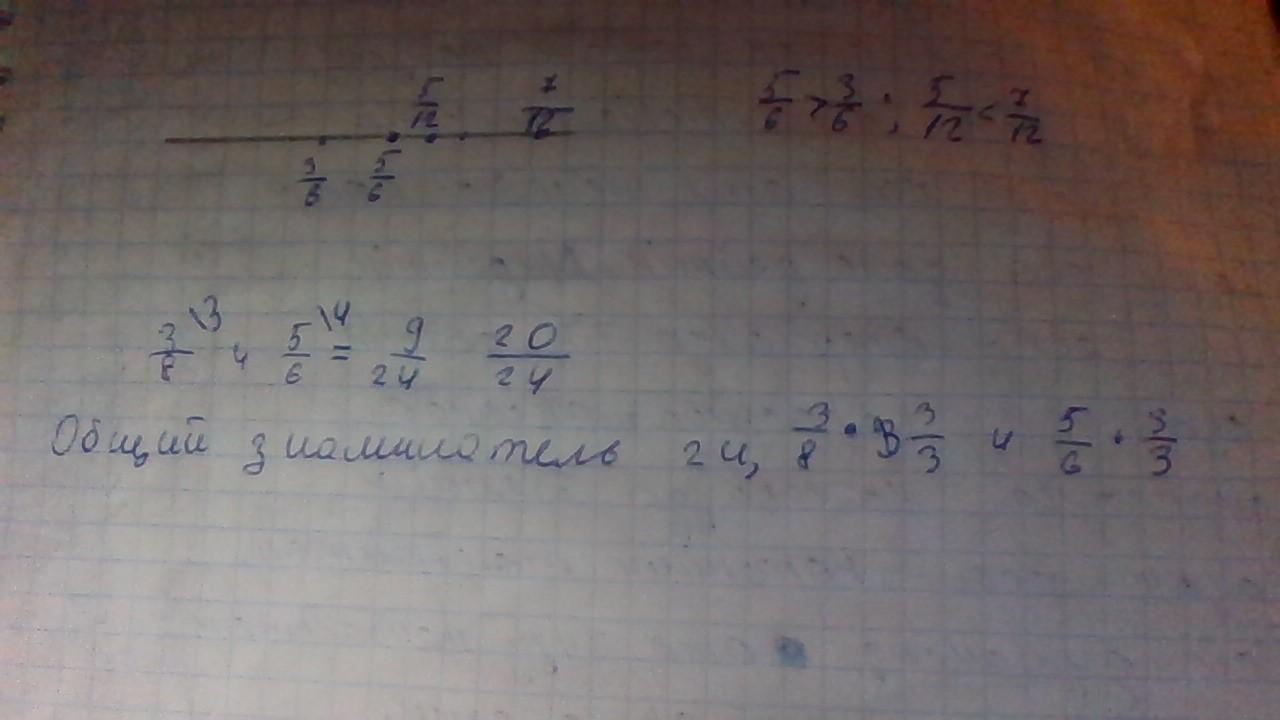 5/12 7/12 5/6 > 3/6 ; 5/12 < 7/12
3/6 5/6
3/8 \3 и 5/6 \4 = 9/24 20/24
Общий знаменатель 24, 3/8 · 3/3 и 5/6 · 3/3